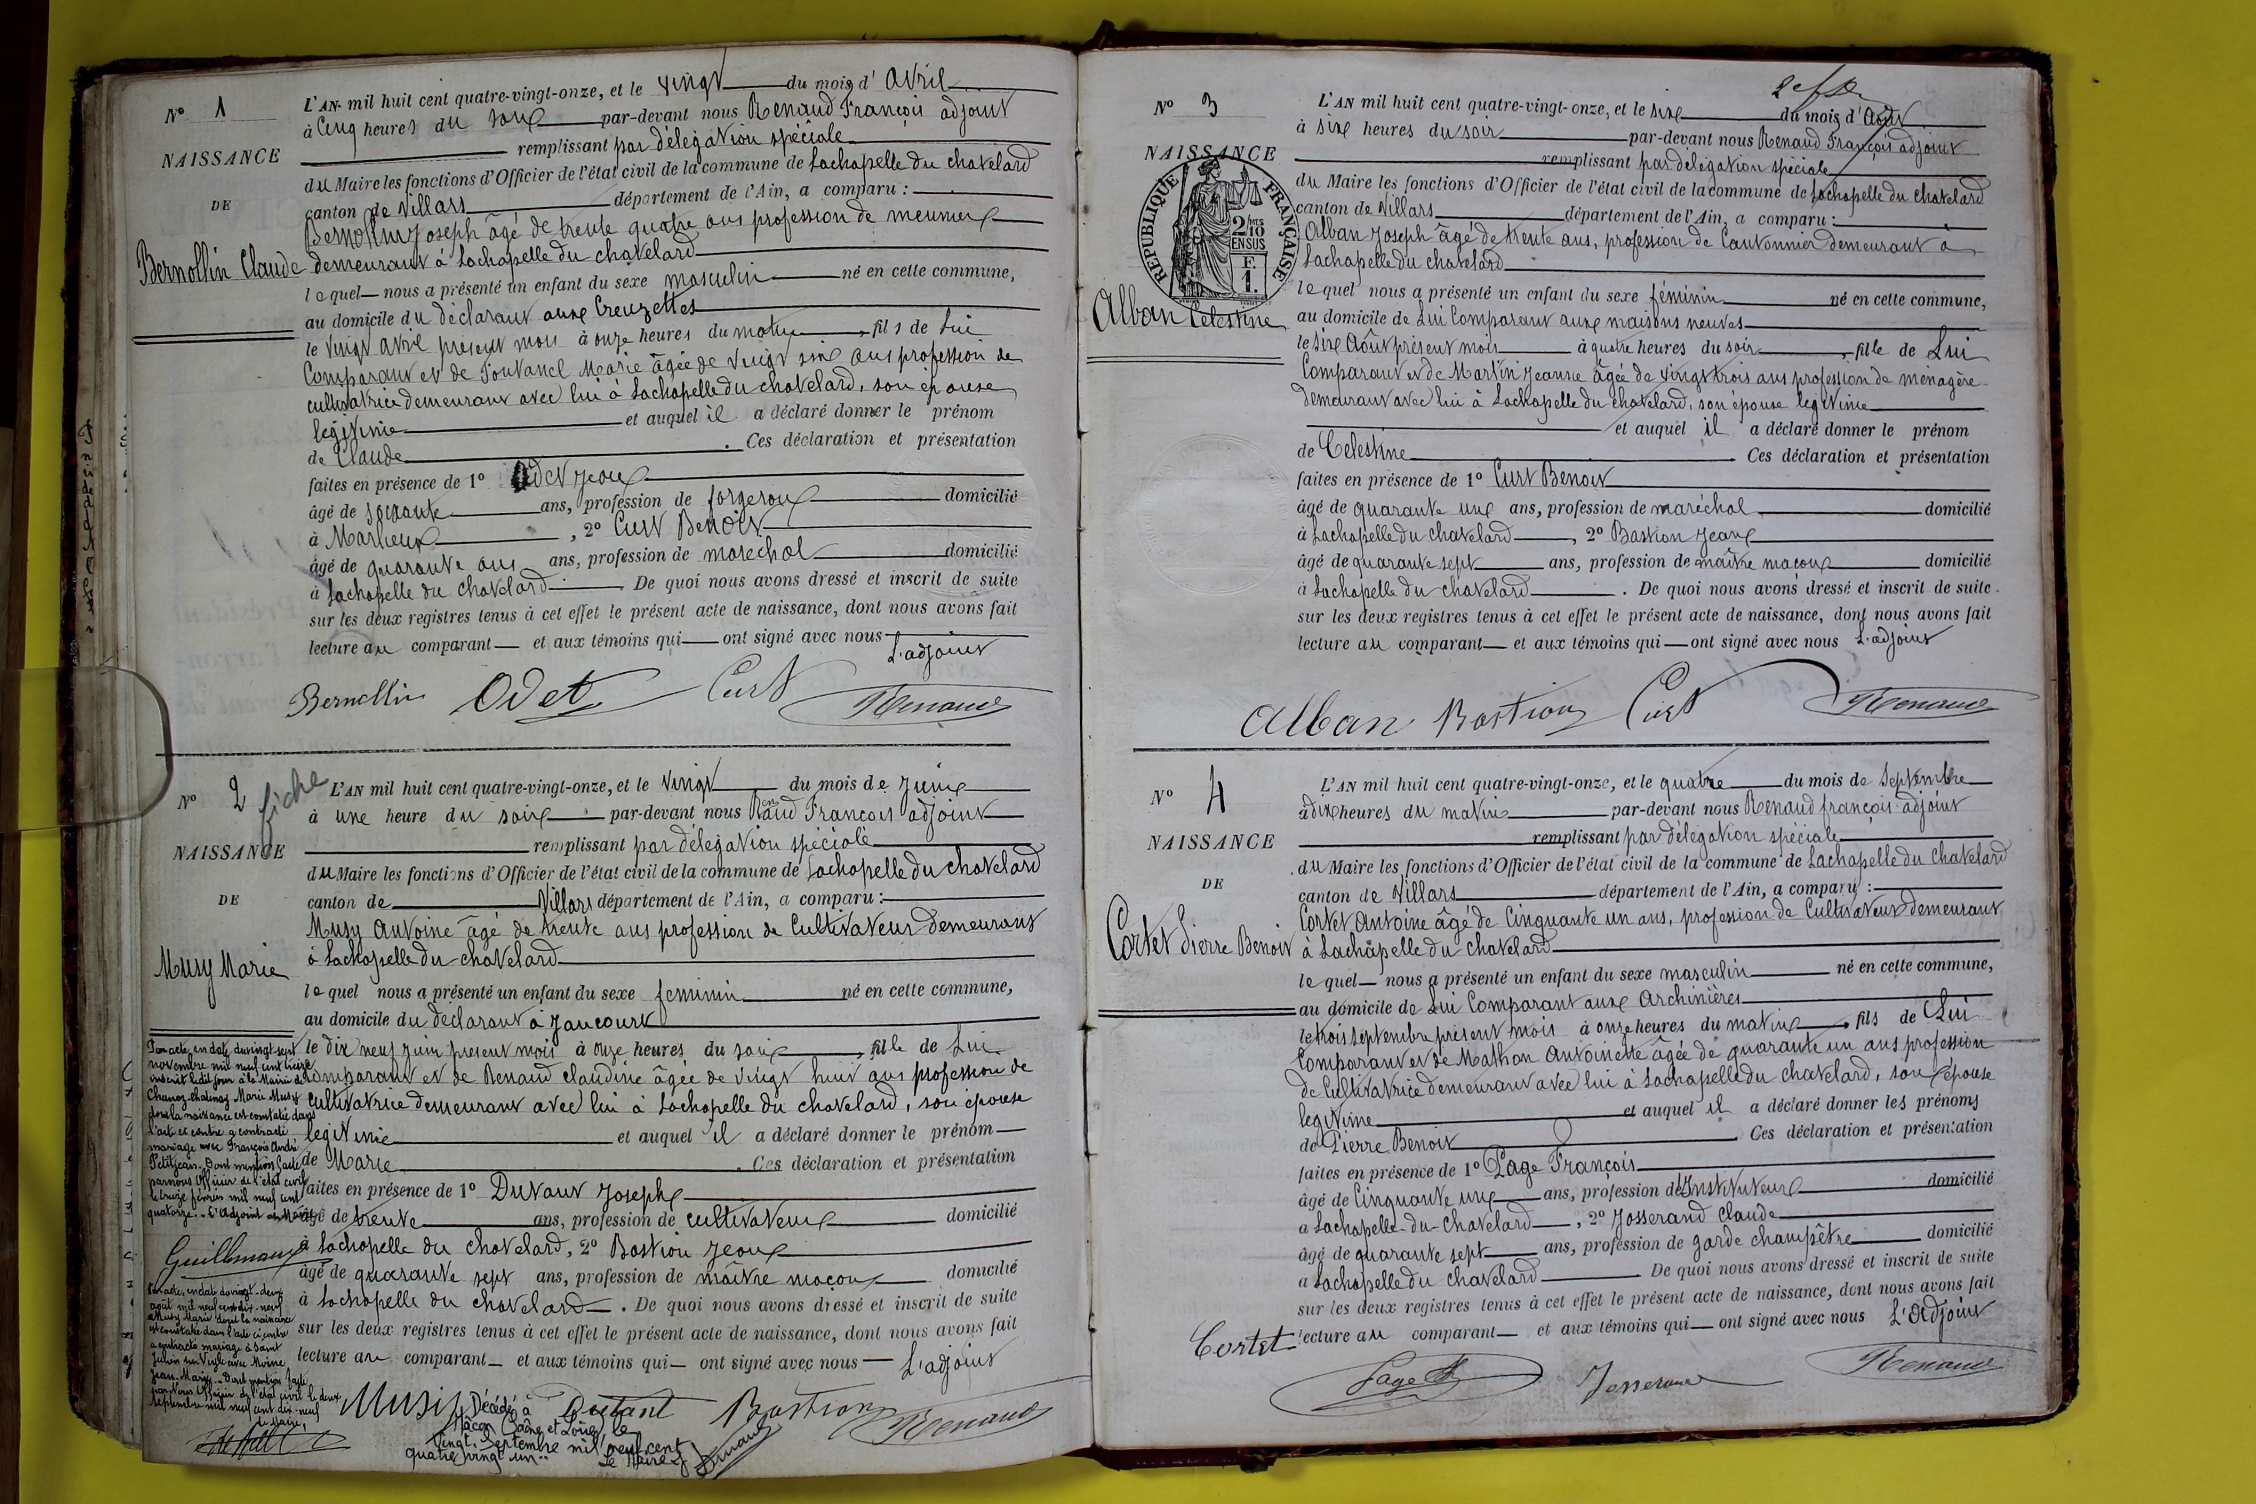 N° 1
NAISSANCE
DE
Bernollin Claude
L'AN mil huit cent quatre-vingt-onze, et le vingt du mois d' avril
à Cinq heures du soir par-devant nous Renaud François adjoint
remplissant par délégation spéciale
du Maire les fonctions d'Officier de l'état civil de la commune de Lachapelle du chatelard
canton de Villars département de l'Ain, a comparu :
Bernollin Joseph âgé de trente quatre ans profession de meunier
demeurant à Lachapelle du chatelard
lequel nous a présenté un enfant du sexe masculin né en cette commune,
au domicile du déclarant aux Creuzettes
le vingt avril présent mois à onze heures du matin, fils de Lui
Comparant et de Fontanel Marie âgée de vingt six ans profession de
cultivatrice demeurant avec lui à Lachapelle du chatelard, son épouse
legitime et auquel il a déclaré donner le prénom
de Claude. Ces déclaration et présentation
faites en présence de 1° Odet Jean
âgé de soixante ans, profession de forgeron domicilié
à Marlieux, 2° Curt Benoit
âgé de quarante ans ans, profession de maréchal domicilié
à Lachapelle du chatelard De quoi nous avons dressé et inscrit de suite
sur les deux registres tenus à cet effet le présent acte de naissance, dont nous avons fait
lecture au comparant et aux témoins qui ont signé avec nous
L'adjoint
Bernollin Odet Curt Renaud
N° 2
fiche
NAISSANCE
DE
Musy Marie
L'AN mil huit cent quatre-vingt-onze, et le vingt du mois de Juin
à une heure du soir par-devant nous Renaud Francois adjoint
remplissant par délégation spéciale
du Maire les fonctions d'Officier de l'état civil de la commune de Lachapelle du chatelard
canton de Villars département de l'Ain, a comparu :
Musy Antoine âgé de trente ans profession de Cultivateur demeurant
à Lachapelle du chatelard
lequel nous a présenté un enfant du sexe feminin né en cette commune,
au domicile du déclarant à Jancourt
le dix neuf juin present mois à onze heures du soir, fille de Lui
Comparant et de Renaud Claudine âgée de vingt huit ans profession de
cultivatrice demeurant avec lui à Lachapelle du chatelard, son épouse
legitime et auquel il a déclaré donner le prénom
de Marie. Ces déclaration et présentation
faites en présence de 1° Dutant Joseph
âgé de trente ans, profession de cultivateur domicilié
à Lachapelle du chatelard, 2° Bastion Jean
âgé de quarante sept ans, profession de maître maçon domicilié
à Lachapelle du chatelard. De quoi nous avons dressé et inscrit de suite
sur les deux registres tenus à cet effet le présent acte de naissance, dont nous avons fait
lecture au comparant et aux témoins qui ont signé avec nous L'adjoint
Musi Dutant Bastion Renaud
Par acte en date du vingt-sept
novembre mil neuf cent treize
inscrit ledit jour à la Mairie de
Chanoz-Chatenay Marie Musy
dont la naissance est constatée dans
l'acte ci-contre a contracté
mariage avec François André
Petitjean. Dont mention faite
par nous Officier de l'état civil
le treize février mil neuf cent
quatorze. L'Adjoint au Maire,
Guillemaux
Par acte en date du vingt-deux
août mil neuf cent dix-neuf
Musy Marie dont la naissance
est constatée dans l'acte ci-contre
a contracté mariage à Saint
Julien sur Veyle avec Moine
Jean-Marie. Dont mention faite
par Nous Officier de l'état civil le deux
septembre mil neuf cent dix-neuf
Le Maire,
Décédée à
Mâcon (Saône et Loire) le
vingt septembre mil neuf cent
quatre vingt un.
Le Maire
N° 3
NAISSANCE
RÉPUBLIQUE FRANÇAISE
2/10 EN SUS
F.
1.
Alban Celestine
L'AN mil huit cent quatre-vingt-onze, et le six du mois d'Août
à six heures du soir par-devant nous Renaud François adjoint
remplissant par délégation spéciale
du Maire les fonctions d'Officier de l'état civil de la commune de Lachapelle du chatelard
canton de Villars département de l'Ain, a comparu :
Alban Joseph âgé de trente ans, profession de Cantonnier demeurant à
Lachapelle du chatelard
lequel nous a présenté un enfant du sexe féminin né en cette commune,
au domicile de Lui Comparant aux maisons neuves
le six Août présent mois à quatre heures du soir, fille de Lui
Comparant et de Martin Jeanne âgée de vingt trois ans profession de ménagère
demeurant avec lui à Lachapelle du chatelard, son épouse legitime
et auquel il a déclaré donner le prénom
de Celestine. Ces déclaration et présentation
faites en présence de 1° Curt Benoit
âgé de quarante un ans, profession de maréchal domicilié
à Lachapelle du chatelard, 2° Bastion Jean
âgé de quarante sept ans, profession de maître maçon domicilié
à Lachapelle du chatelard. De quoi nous avons dressé et inscrit de suite
sur les deux registres tenus à cet effet le présent acte de naissance, dont nous avons fait
lecture au comparant et aux témoins qui ont signé avec nous L'adjoint
Alban Bastion Curt Renaud
N° 4
NAISSANCE
DE
Cortet Pierre Benoit
L'AN mil huit cent quatre-vingt-onze, et le quatre du mois de Septembre
à dix heures du matin par-devant nous Renaud françois adjoint
remplissant par délégation spéciale
du Maire les fonctions d'Officier de l'état civil de la commune de Lachapelle du Chatelard
canton de Villars département de l'Ain, a comparu :
Cortet Antoine âgé de Cinquante un ans, profession de Cultivateur demeurant
à Lachapelle du Chatelard
lequel nous a présenté un enfant du sexe masculin né en cette commune,
au domicile de Lui Comparant aux Archinières
le trois septembre présent mois à onze heures du matin, fils de Lui
Comparant et de Mathon Antoinette âgée de quarante un ans profession
de Cultivatrice demeurant avec lui à Lachapelle du chatelard, son épouse
legitime et auquel il a déclaré donner les prénoms
de Pierre Benoit Ces déclaration et présentation
faites en présence de 1° Page François
âgé de Cinquante un ans, profession d'Instituteur domicilié
à Lachapelle-du-Chatelard, 2° Josserand Claude
âgé de quarante sept ans, profession de garde champêtre domicilié
à Lachapelle du chatelard De quoi nous avons dressé et inscrit de suite
sur les deux registres tenus à cet effet le présent acte de naissance, dont nous avons fait
lecture au comparant et aux témoins qui ont signé avec nous L'adjoint
Cortet Page Josserand Renaud